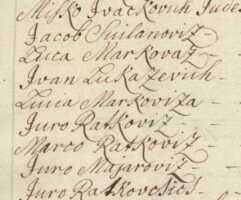 Misko Ivackovich Jude
Jacob Suilanovitz
Luca Markovatz
Ivan Lukazevich
Luica Markovitza
Juro Ratkovitz
Marco Ratkovitz
Juro Majarovitz
Juro